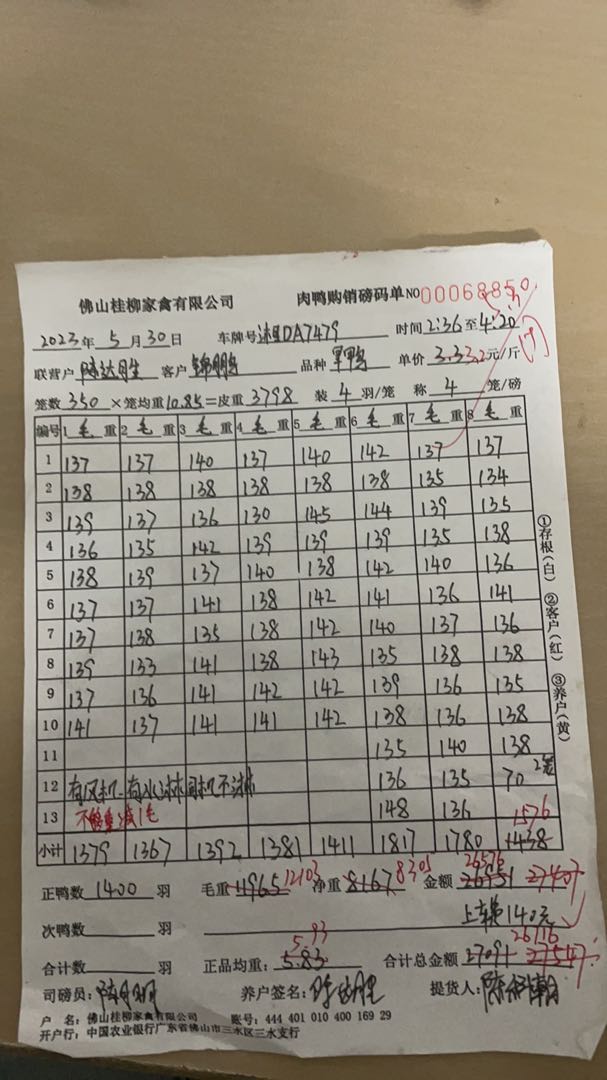 佛山桂柳家禽有限公司 肉鸭购销磅码单 NO 00068850
2023年 5月30日 车牌号 湘 DA7479 时间 2:36 至 4:20
联营户 陈达胜 客户 锦鹏 品种 单价 3.3 元/斤
笼数 350 ×笼均重 10.85 =皮重 3798 装 4 羽/笼 称 4 笼/磅
编号 1 毛 重 2 毛 重 3 毛 重 4 毛 重 5 毛 重 6 毛 重 7 毛 重 8 毛 重
1 137 137 140 137 140 142 137 137
2 138 138 138 138 138 138 135 134
3 139 137 136 130 145 144 139 135
4 136 135 142 139 139 139 135 138
5 138 139 137 140 138 142 140 136
6 137 137 141 138 142 141 136 141
7 137 138 135 138 142 140 137 136
8 139 133 141 138 143 135 138 138
9 137 136 141 142 142 139 136 135
10 141 137 141 141 142 138 136 138
11 135 140 138
12 有风机-有水淋 不淋 136 135 70 2笼
13 不 减1毛 148 136 1576
小计 1379 1367 1392 1381 1411 1817 1780 1438
①存根(白) ②客户(红) ③养户(黄)
正鸭数 1400 羽 毛重 11965 12103 净重 8167 8305 金额 26951 26576 27407
次鸭数 羽 上车费140元
合计数 羽 正品均重: 5.83 5.93 合计总金额 27091 26716 27547
司磅员: 养户签名: 陈达胜 提货人:
户 名: 佛山桂柳家禽有限公司 账号: 444 401 010 400 169 29
开户行: 中国农业银行广东省佛山市三水区三水支行